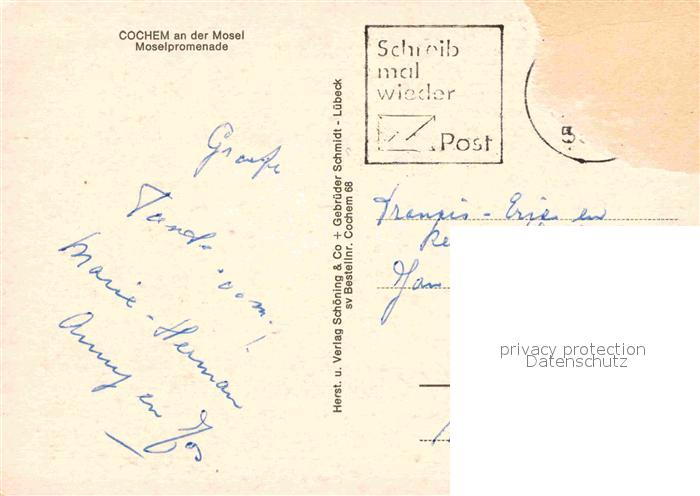 COCHEM an der Mosel
Moselpromenade
Schreib
mal
wieder
Post
5
Herst. u. Verlag Schöning & Co + Gebrüder Schmidt - Lübeck
sv Bestellnr. Cochem 68
Marie - Herman
Anny en Jos
en
Jan
privacy protection
Datenschutz